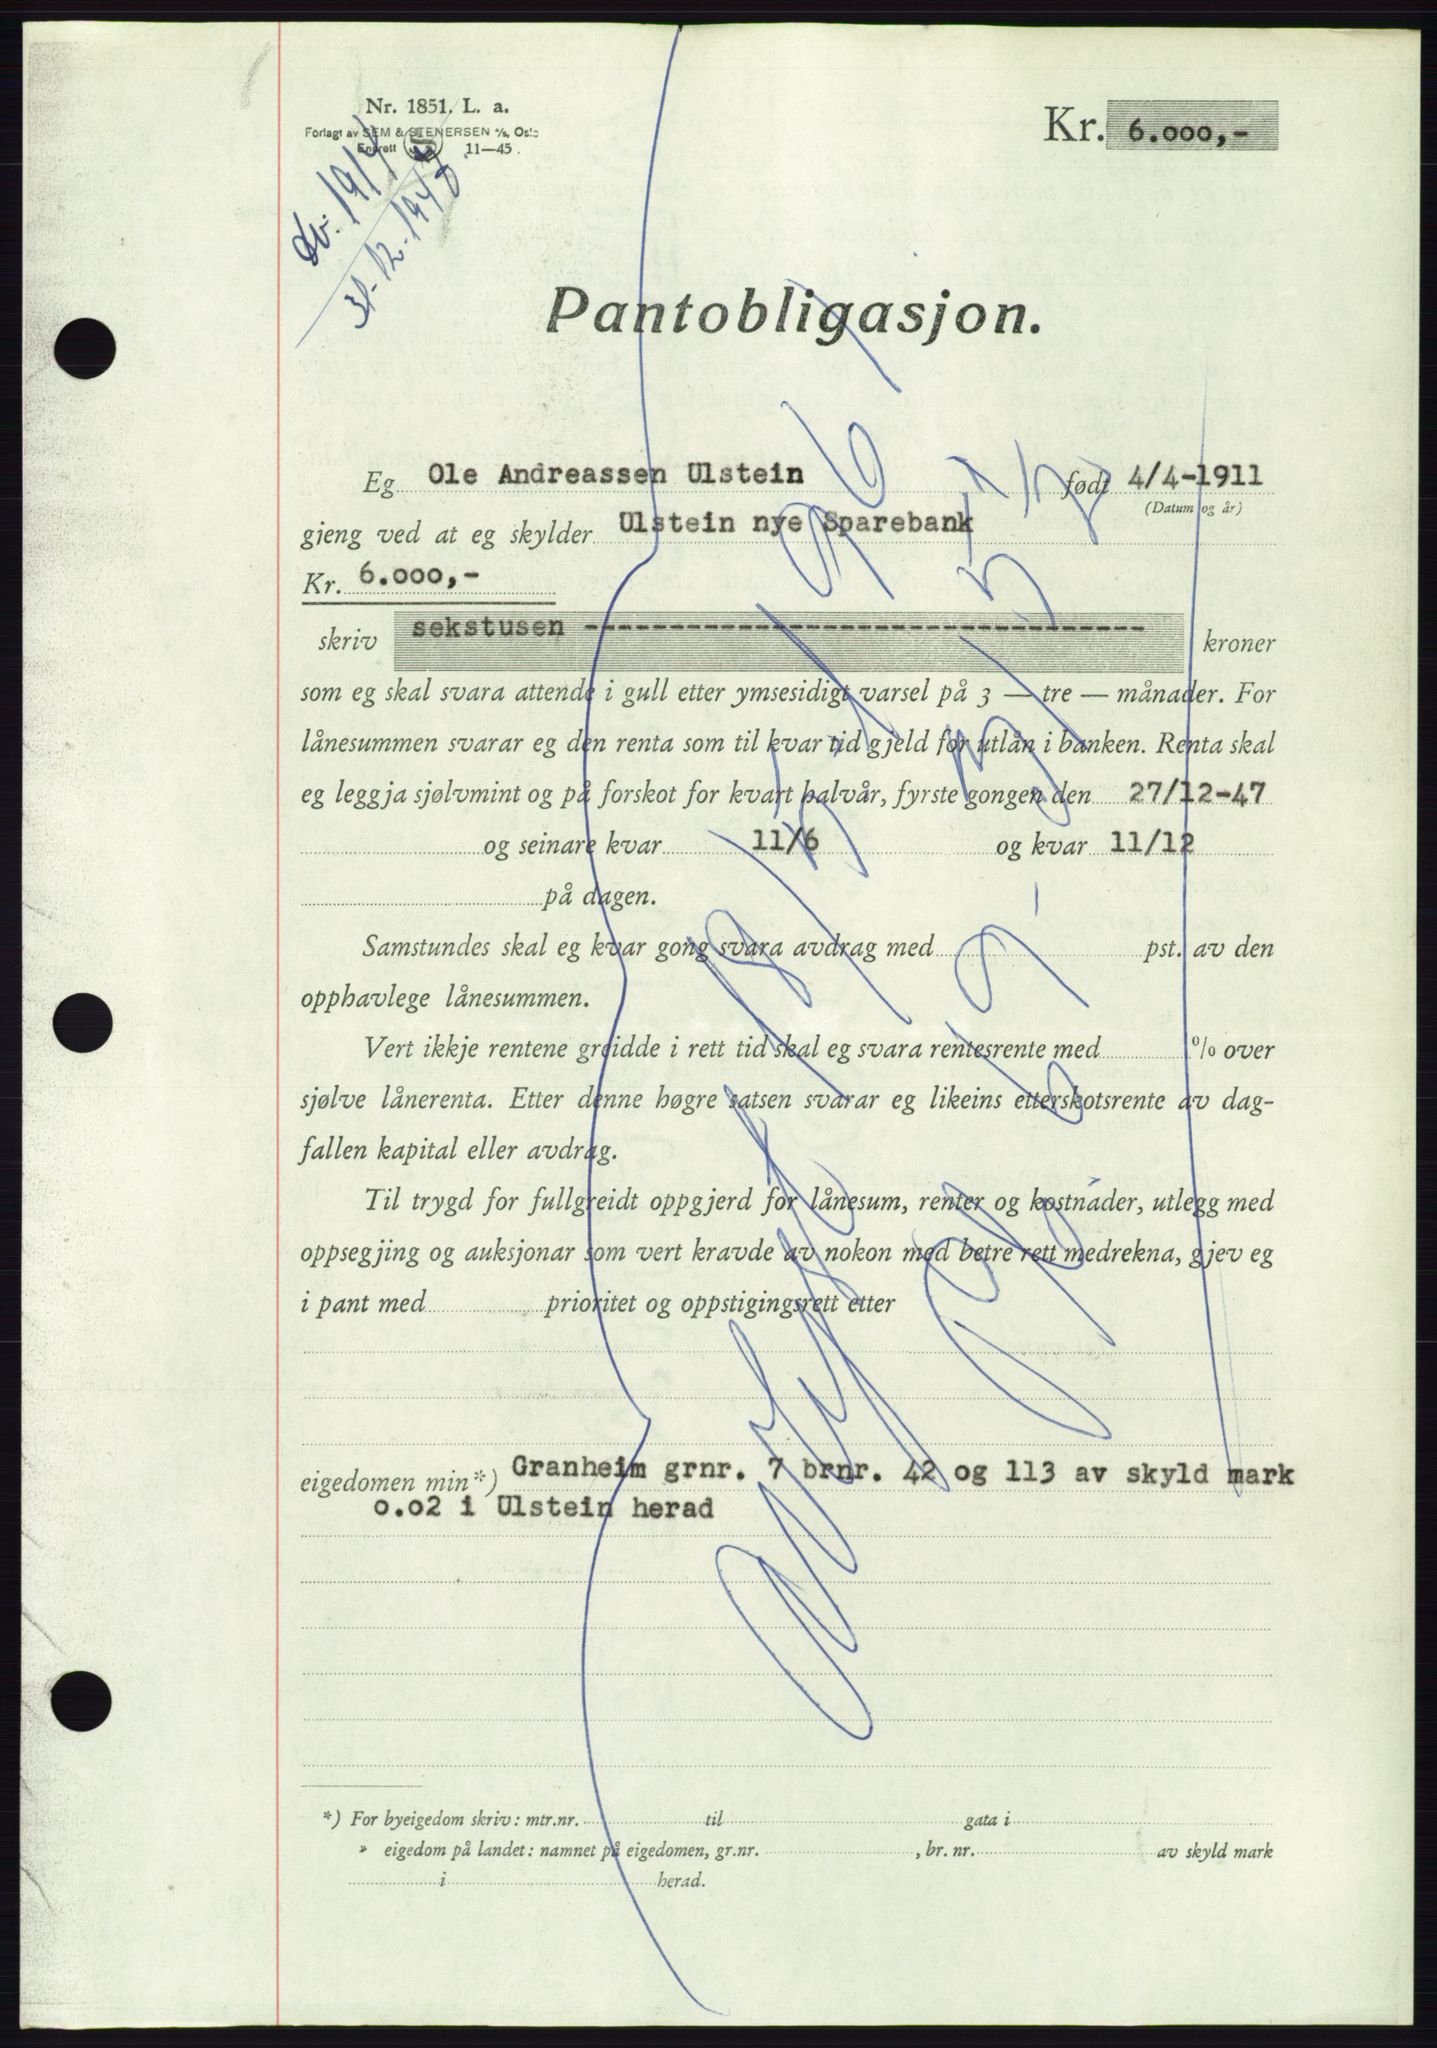 Nr. 1851. L. a.
Forlagt av SEM & STENERSEN A/S, Oslo
Enerett S 11—45.
Kr. 6.000,-
31-12-1948
Pantobligasjon.
Eg Ole Andreassen Ulstein født 4/4-1911
(Datum og år)
gjeng ved at eg skylder Ulstein nye Sparebank
Kr. 6.000,-
skriv sekstusen -------------------------------- kroner
som eg skal svara attende i gull etter ymsesidigt varsel på 3 — tre — månader. For
lånesummen svarar eg den renta som til kvar tid gjeld for utlån i banken. Renta skal
eg leggja sjølvmint og på forskot for kvart halvår, fyrste gongen den 27/12-47
og seinare kvar 11/6 og kvar 11/12
på dagen.
Samstundes skal eg kvar gong svara avdrag med pst. av den
opphavlege lånesummen.
Vert ikkje rentene greidde i rett tid skal eg svara rentesrente med % over
sjølve lånerenta. Etter denne høgre satsen svarar eg likeins etterskotsrente av dag-
fallen kapital eller avdrag.
Til trygd for fullgreidt oppgjerd for lånesum, renter og kostnader, utlegg med
oppsegjing og auksjonar som vert kravde av nokon med betre rett medrekna, gjev eg
i pant med prioritet og oppstigingsrett etter
eigedomen min*) Granheim grnr. 7 brnr. 42 og 113 av skyld mark
0.02 i Ulstein herad
*) For byeigedom skriv: mtr.nr. til gata i
» eigedom på landet: namnet på eigedomen, gr.nr. , br. nr. av skyld mark
i herad.